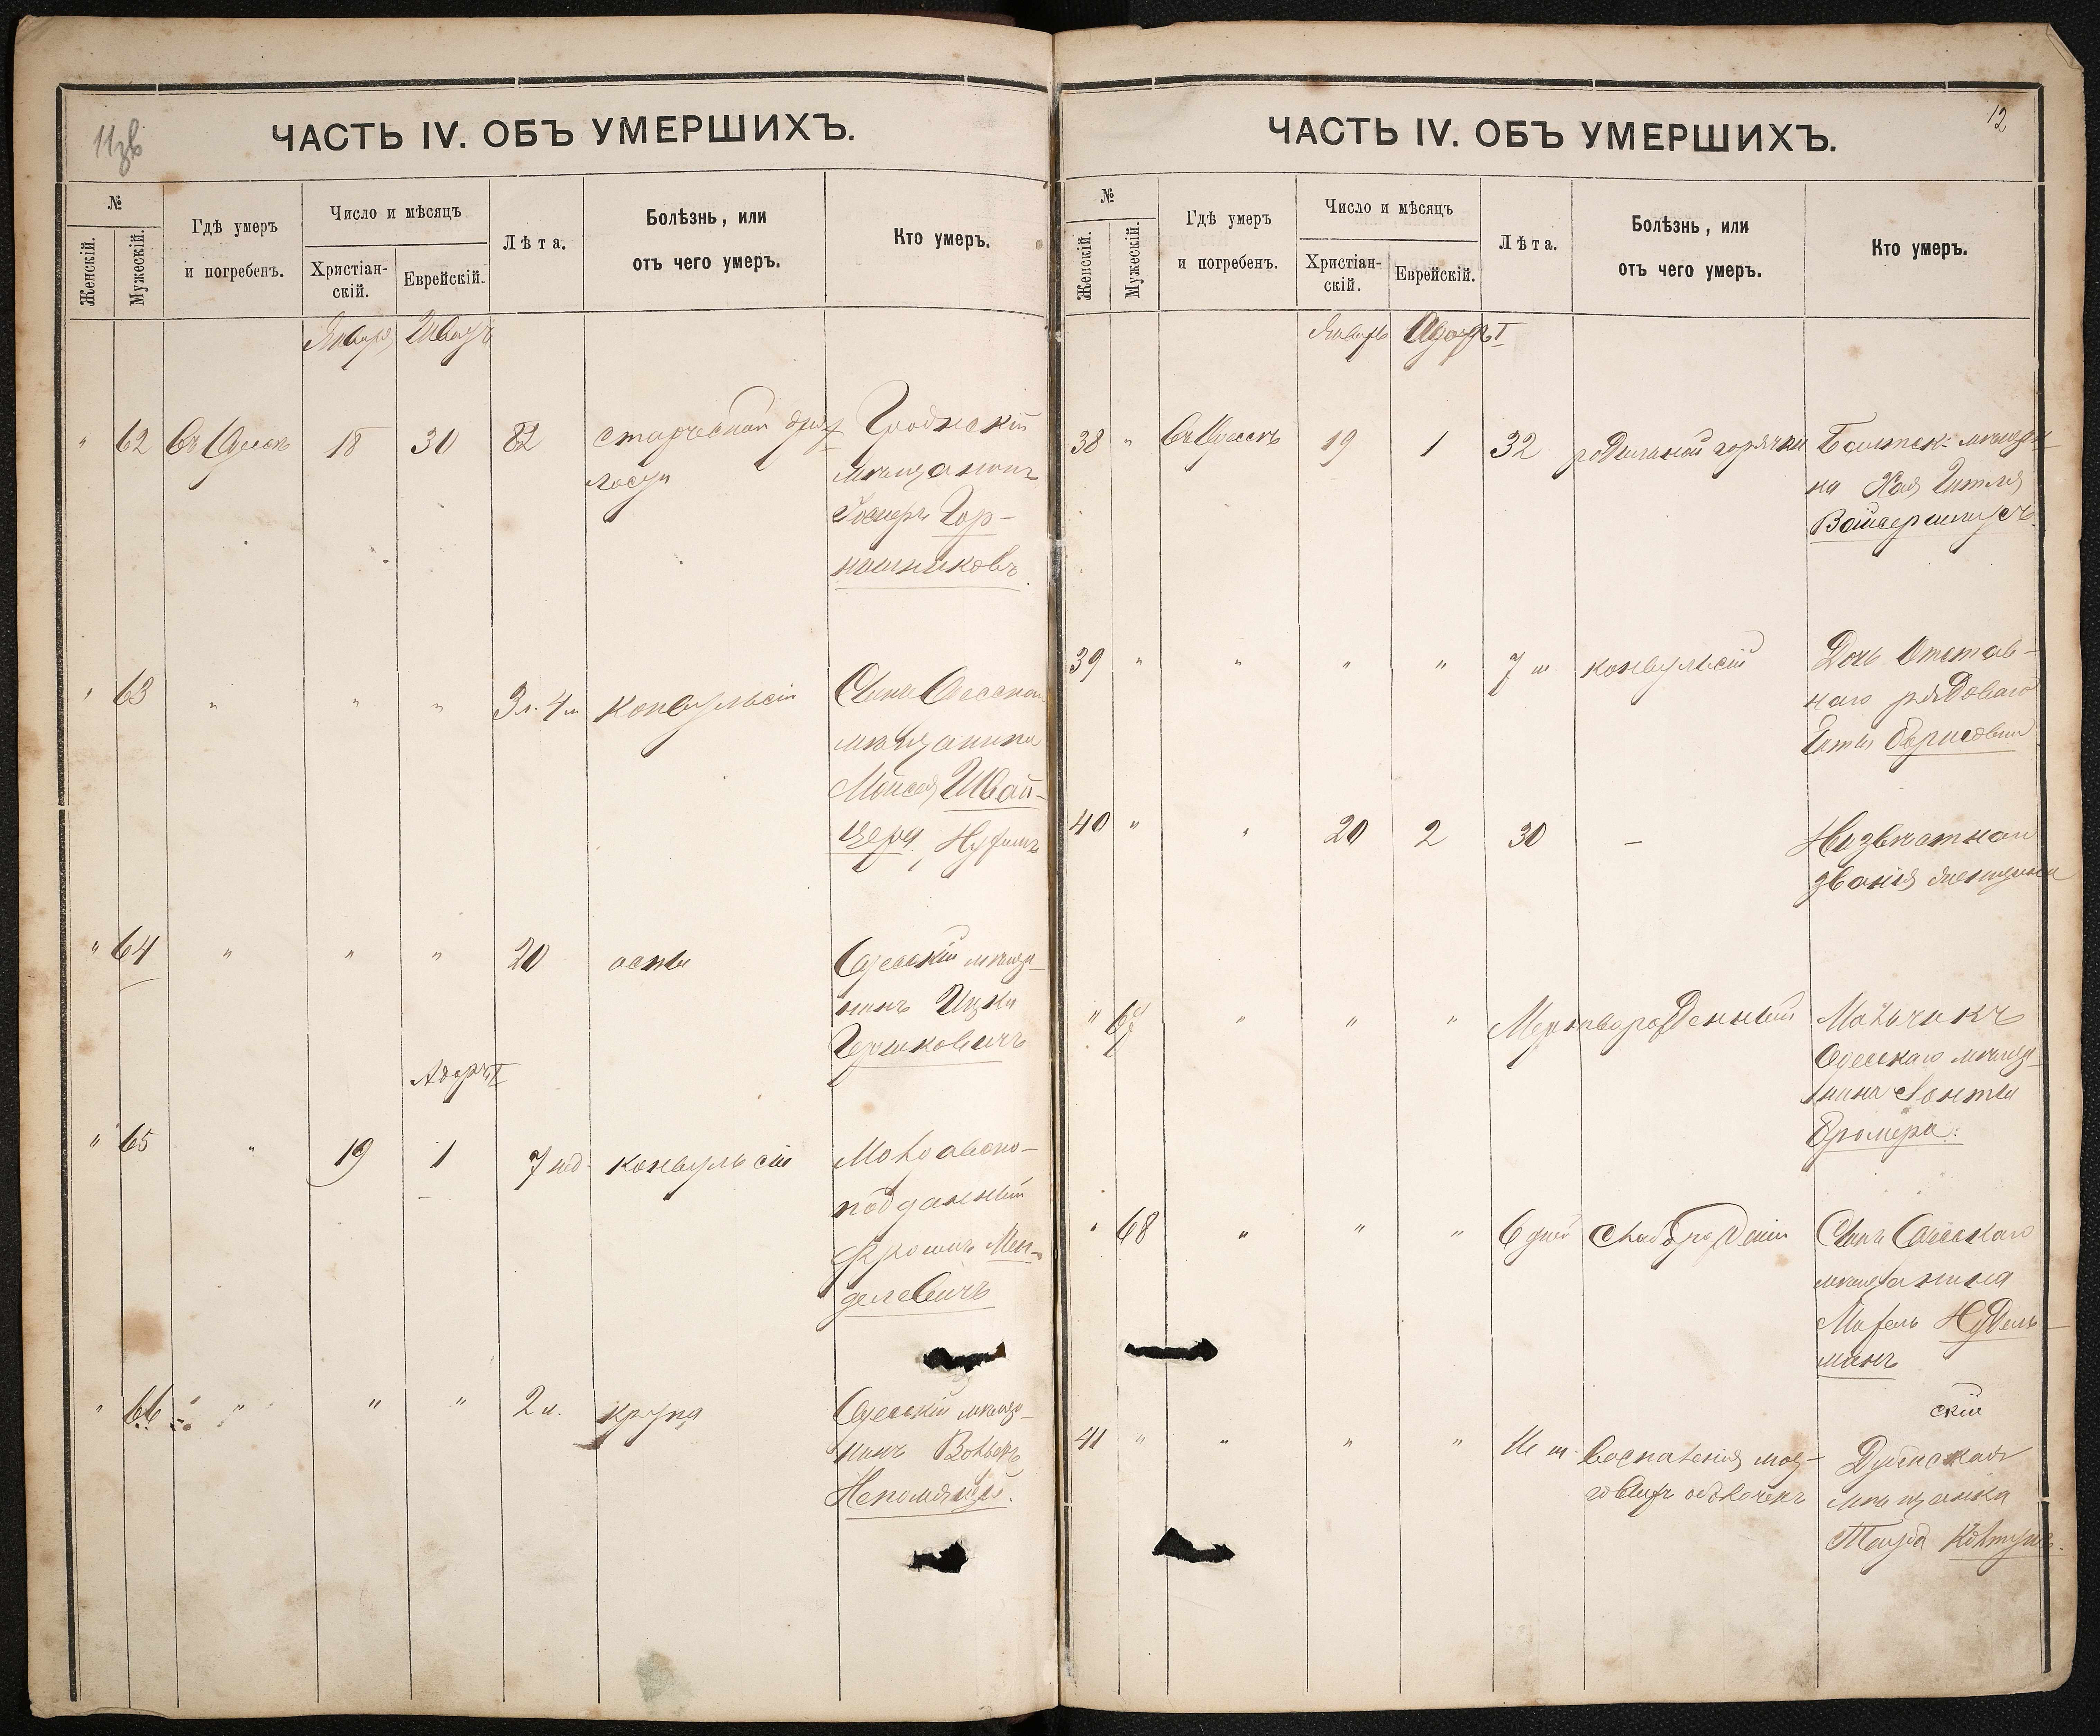 11зв
ЧАСТЬ IV. ОБЪ УМЕРШИХЪ.
№
Женскій.
Мужескій.
Гдѣ умеръ
и погребенъ.
Число и мѣсяцъ
Христіан-
скій.
Еврейскій.
Лѣта.
Болѣзнь, или
отъ чего умеръ.
Кто умеръ.
Январь Шватъ
" 62 Въ Одессѣ 18 30 82 старческой дрях Гроднскій
лости мѣщанинъ
Гор-
нишниковъ
" 63 " " " 3 л. 4 м конвульсіи Сынъ Одесскаго
мѣщанина
Моисея Швай-
цера, Нухимъ
" 64 " " " 20 оспы Одесскій мѣща-
нинъ Ицка
Гершковичъ
Адаръ I
" 65 " 19 1 7 нед. конвульсіи Молдавско-
подданный
Фроимъ Мен-
делевичъ
" 66 " " " 2 м. крупа Одесскій мѣща-
нинъ Вольфъ
Непомящій.
12
ЧАСТЬ IV. ОБЪ УМЕРШИХЪ.
№
Женскій.
Мужескій.
Гдѣ умеръ
и погребенъ.
Число и мѣсяцъ
Христіан-
скій.
Еврейскій.
Лѣта.
Болѣзнь, или
отъ чего умеръ.
Кто умеръ.
Январь Адаръ I
38 " Въ Одессѣ 19 1 32 родильной горячки Балтск. мѣщан-
ка Хая Гитля
39 " " " " 7 м. конвульсій Дочь Отстав-
наго рядоваго
Борисови
40 " " 20 2 30 — Неизвѣстнаго
званія женщина
" 67 " " " Мертворожденный Мальчикъ
Одесскаго мѣща-
нина
Бромера.
" 68 " " " 6 дней слаборожденія Сынъ Одесскаго
мѣщанина
Нудель-
манъ
скій
41 " " " " 11 м. воспаленія моз-
говыхъ оболочекъ
мѣщанка
Тауба Колтунъ.